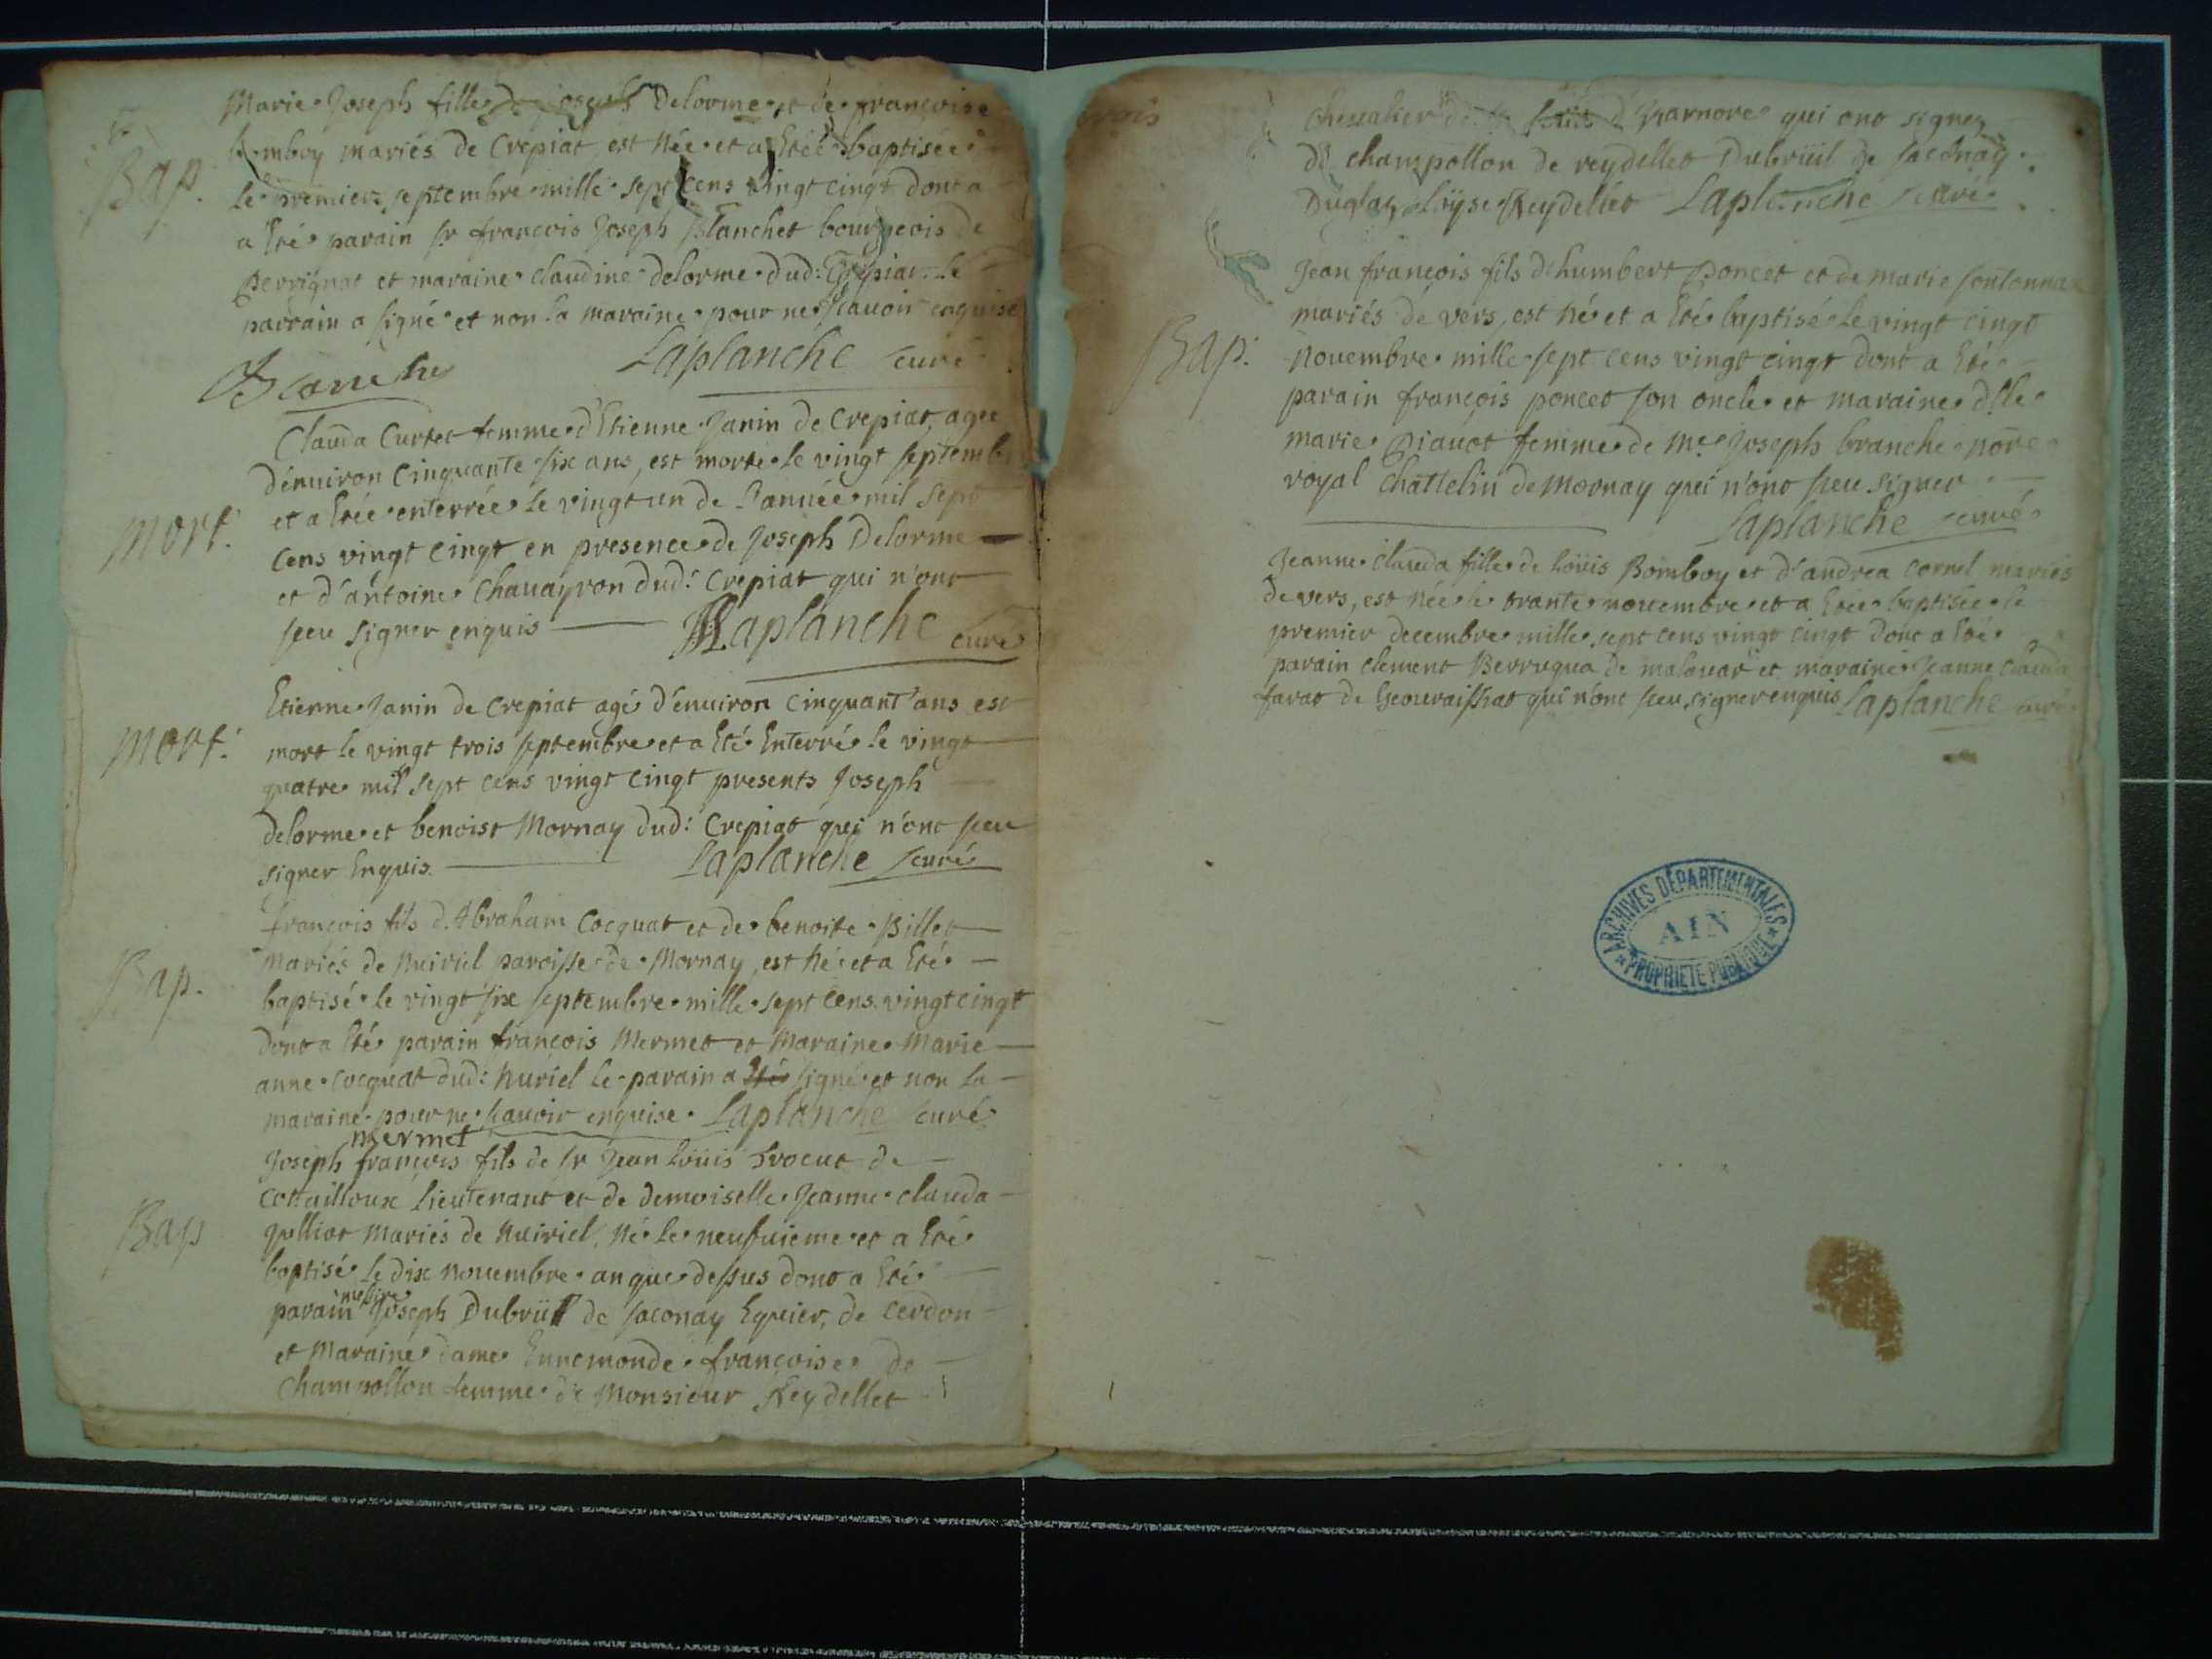 Bap.
Marie Joseph fille de joseph Delorme et de françoise
bomboy mariés de Crepiat, est née et a Etéé baptisée
le premier septembre mille sept cens vingt cingt dont a
a Eté parain sr françois Joseph blanchet bourgeois de
Perrignat et maraine claudine delorme dud: Crepiat le
parrain a signé et non la maraine pour ne scauoir enquise
Laplanche curé
mort.
Clauda Curtet femme d'Etienne Janin de Crepiat, agée
d'enuiron Cinquante six ans, est morte le vingt septembr
et a Etée enterrée le vingt un de l'année mil sept
Cens vingt cingt en presence de Joseph Delorme
et d'antoine Chauayron dud: Crepiat qui n'ont
sceu signer enquis Laplanche curé
mort.
Etienne Janin de Crepiat agé d'énuiron Cinquant'ans est
mort le vingt trois septembre et a Eté Enterré le vingt
quatre mil sept cens vingt cingt presents Joseph
delorme et benoist Mornay dud: Crepiat qui n'ont sceu
signer Enquis. Laplanche curé
Bap.
françois fils d'Abraham Cocquat et de benoite Billet
Mariés de Nuiriel paroisse de Mornay, est né et a Eté
baptisé le vingt six septembre mille sept cens vingt cingt
dont a Eté parain françois Mermet et Maraine Marie
anne Cocquat dud: Nuriel le parain a Eté signé et non la
maraine pour ne scauoir enquise. Laplanche curé
mermet
Bap
Joseph françois fils de sr Jean Loüis de
Cottailloux Lieutenant et de demoiselle Jeanne clauda
mariés de Nuiriel, né le neufuieme et a Eté
baptisé le dix nouembre an que dessus dont a Eté
parain messire Joseph Dubrüil de saconay Equier, de Cerdon
et Maraine dame Ennemonde françoise de
Champollon femme de Monsieur Reydellet
cheualier d'Izarnore qui ont signez
champollon de reydellet Dubrüil de saconay
Reydellet Laplanche curé
Bap.
Jean françois fils d'humbert Poncet et de marie sontonnax
mariés de vers, est né et a Eté baptisé le vingt cingt
nouembre mille sept cens vingt cingt dont a Eté
parain françois poncet son oncle et maraine dlle
marie Piauot femme de Me Joseph branche nore
royal Chattelin de Mornay qui n'ont sceu signer
Laplanche curé
Jeanne Clauda fille de Loüis Bomboy et d'andrea Cornel mariés
de vers, est née le trante nouembre et a Etée baptisée le
premier decembre mille sept cens vingt cingt dont a Eté
parain Clement Berrugua de malauat et maraine Jeanne Clauda
farat de Geouraissiat qui n'ont sceu signer enquis Laplanche curé
ARCHIVES DÉPARTEMENTALES
AIN
PROPRIÉTÉ PUBLIQUE